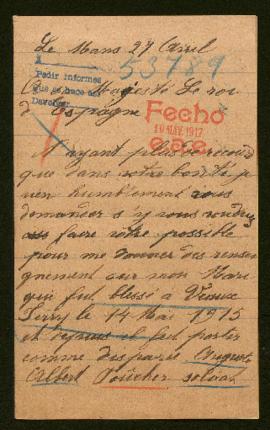 Le Mans 27 Avril
53789
Pedir informes
que se hace
Devolver
A Majesté Le roi
d Espagne
Fecho
10 MAY. 1917
N ayant plus
que dans votre bonté je
vien humblement vous
demander s y vous voudrez
faire votre possible
pour me donner des rensei
gnement sur mon Mari
qui fut blessé a
le 14 Mai 1915
et depuis il fait porter
comme disparu Auguste
Albert soldat